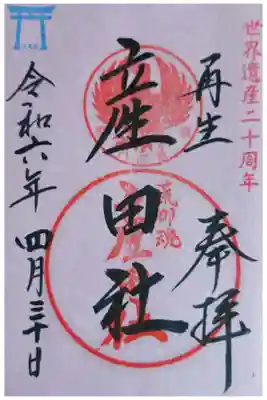 世界遺産二十周年
再生 奉拝
産田社
令和六年 四月三十日